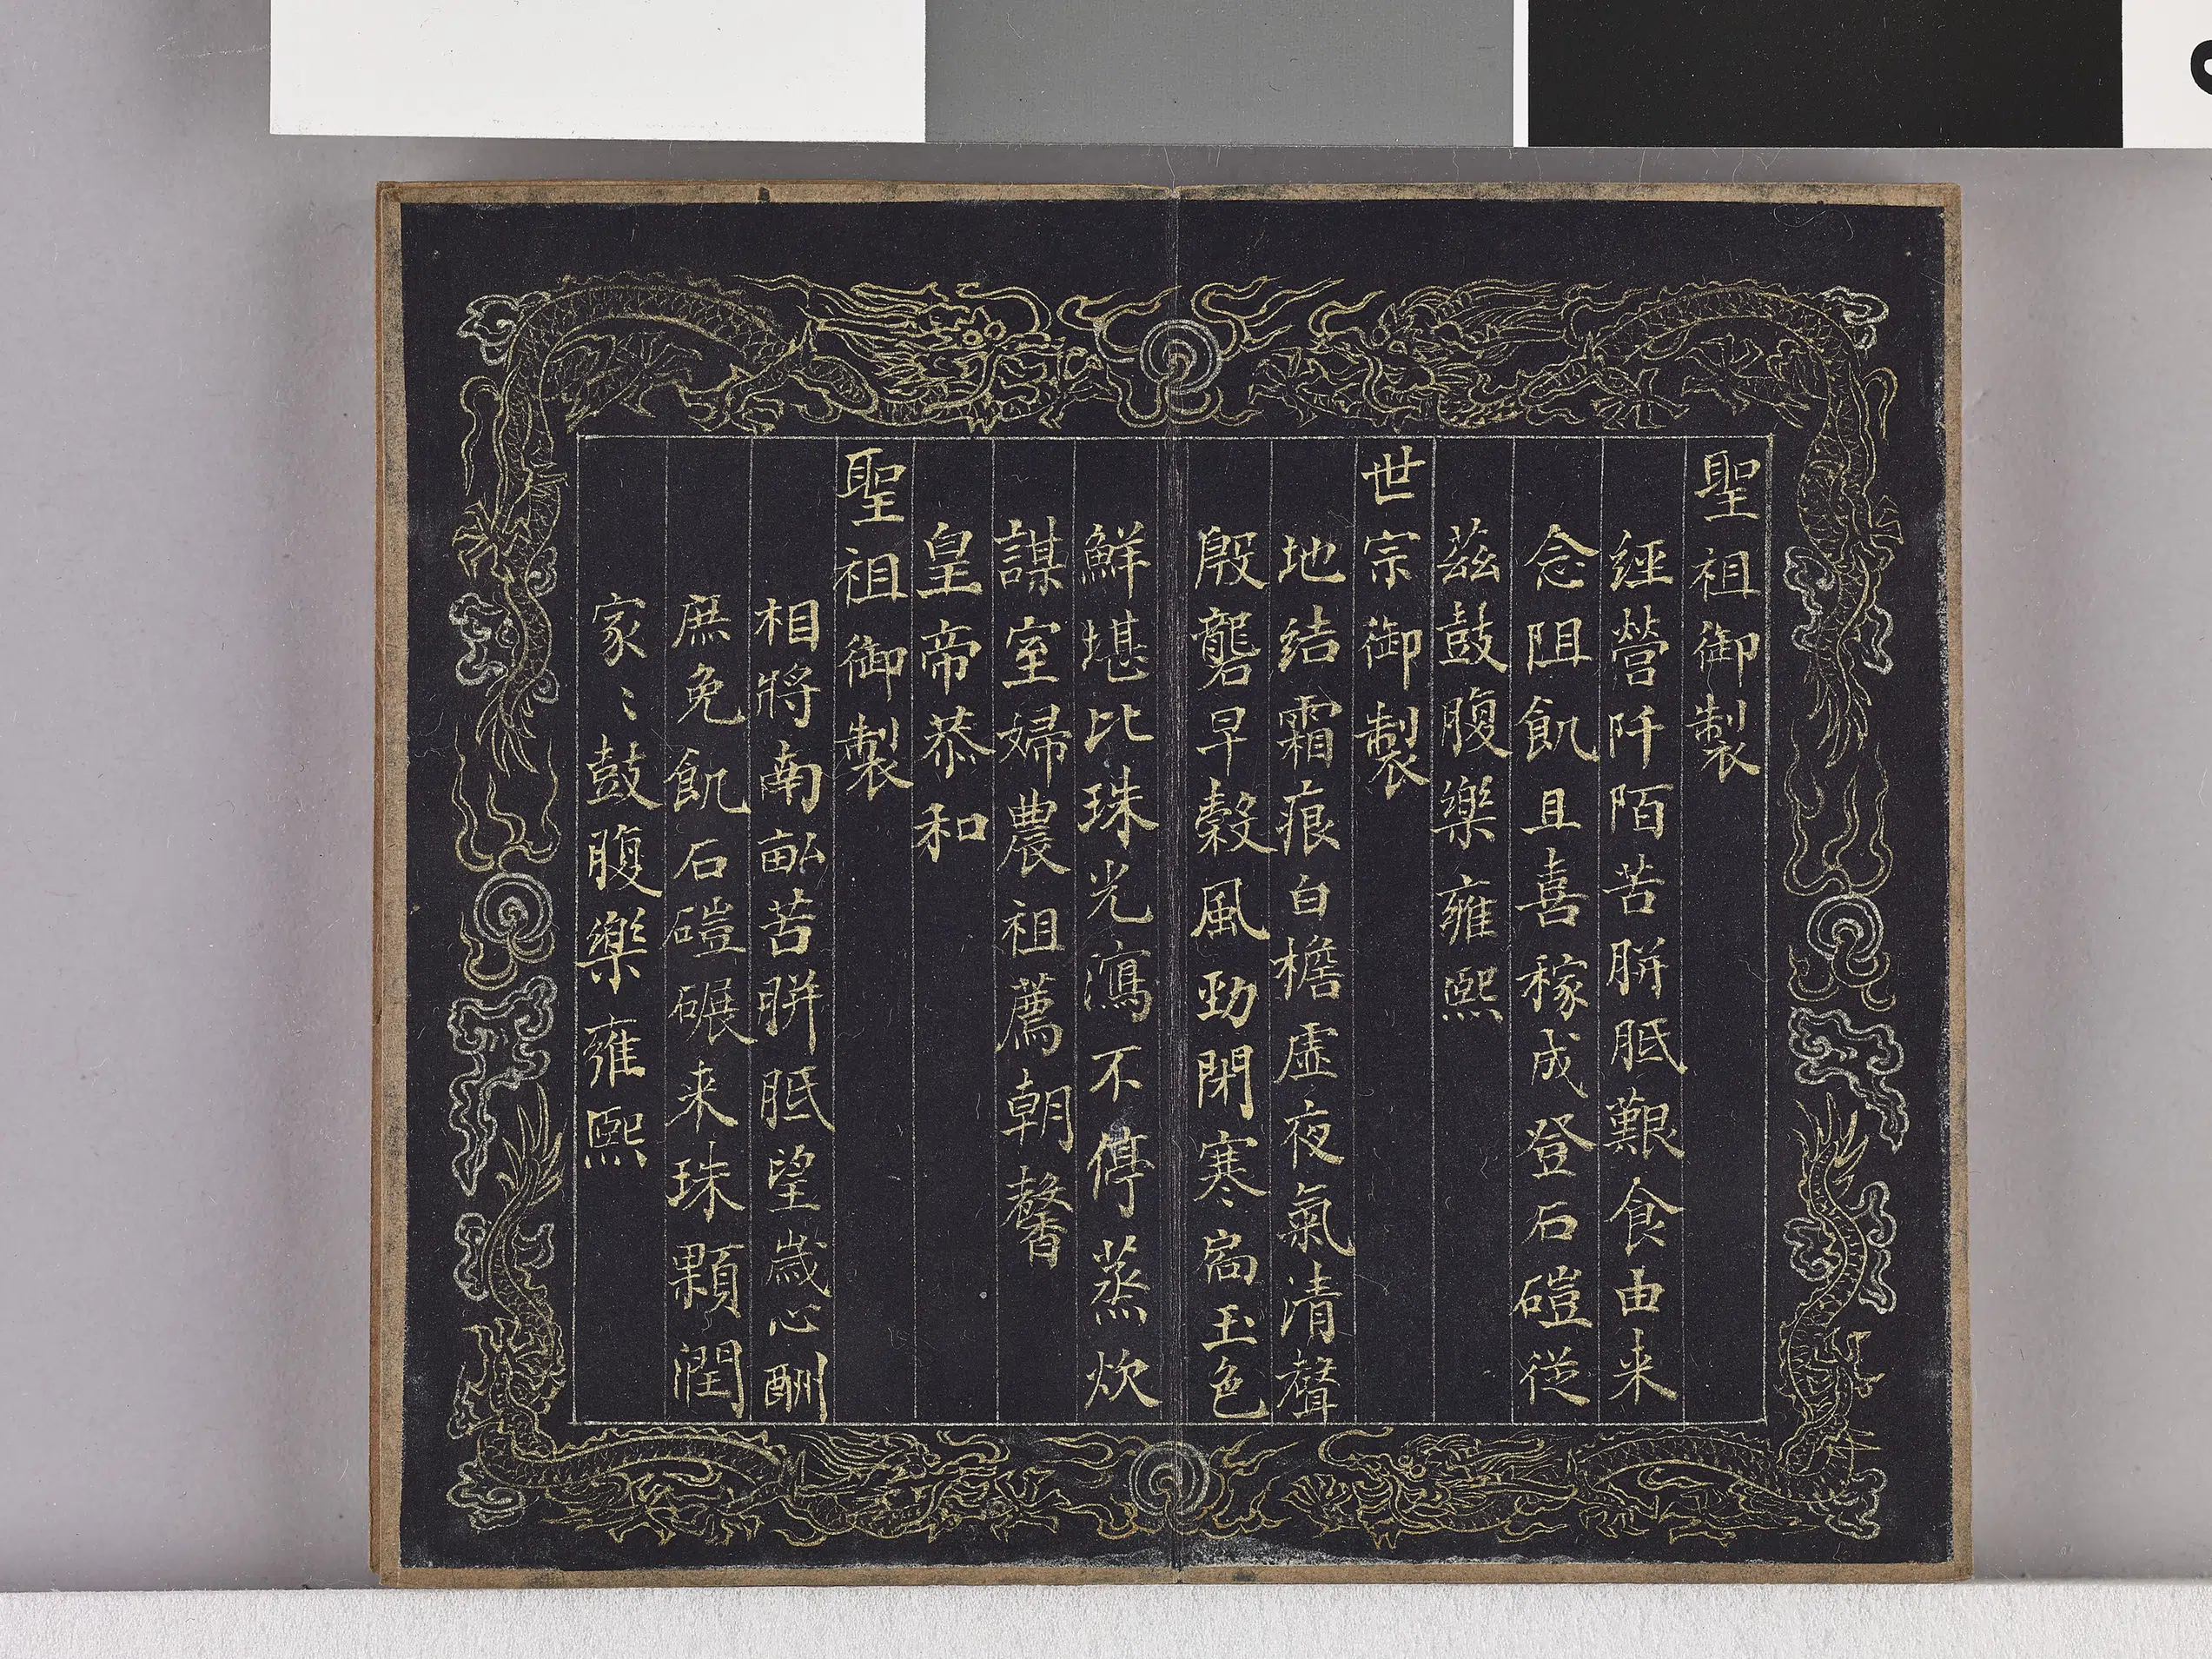 聖祖御製
經營阡陌苦胼胝艱食由来
念阻飢且喜稼成登石磑從
茲鼓腹樂雍熙
世宗御製
地結霜痕白檐虛夜氣清聲
殷礱早穀風勁閉寒扃玉色
鮮堪比珠光瀉不停蒸炊
謀室婦農祖薦朝馨
皇帝恭和
聖祖御製
相將南畝苦胼胝望歲心酬
庶免飢石磑碾来珠顆潤
家〻鼓腹樂雍熙